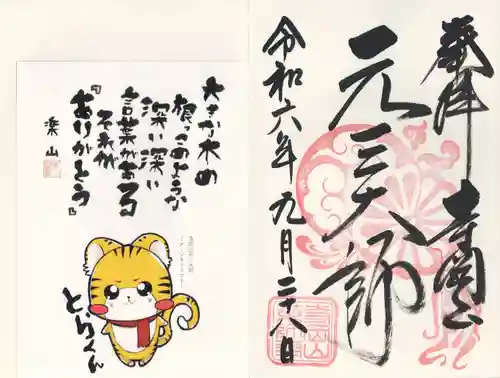 奉拝 寺岡山
元三大師
令和六年九月二十八日
大きな木の
根っこのような
深い深い
言葉がある
それが
『ありがとう』
楽山
とらくん